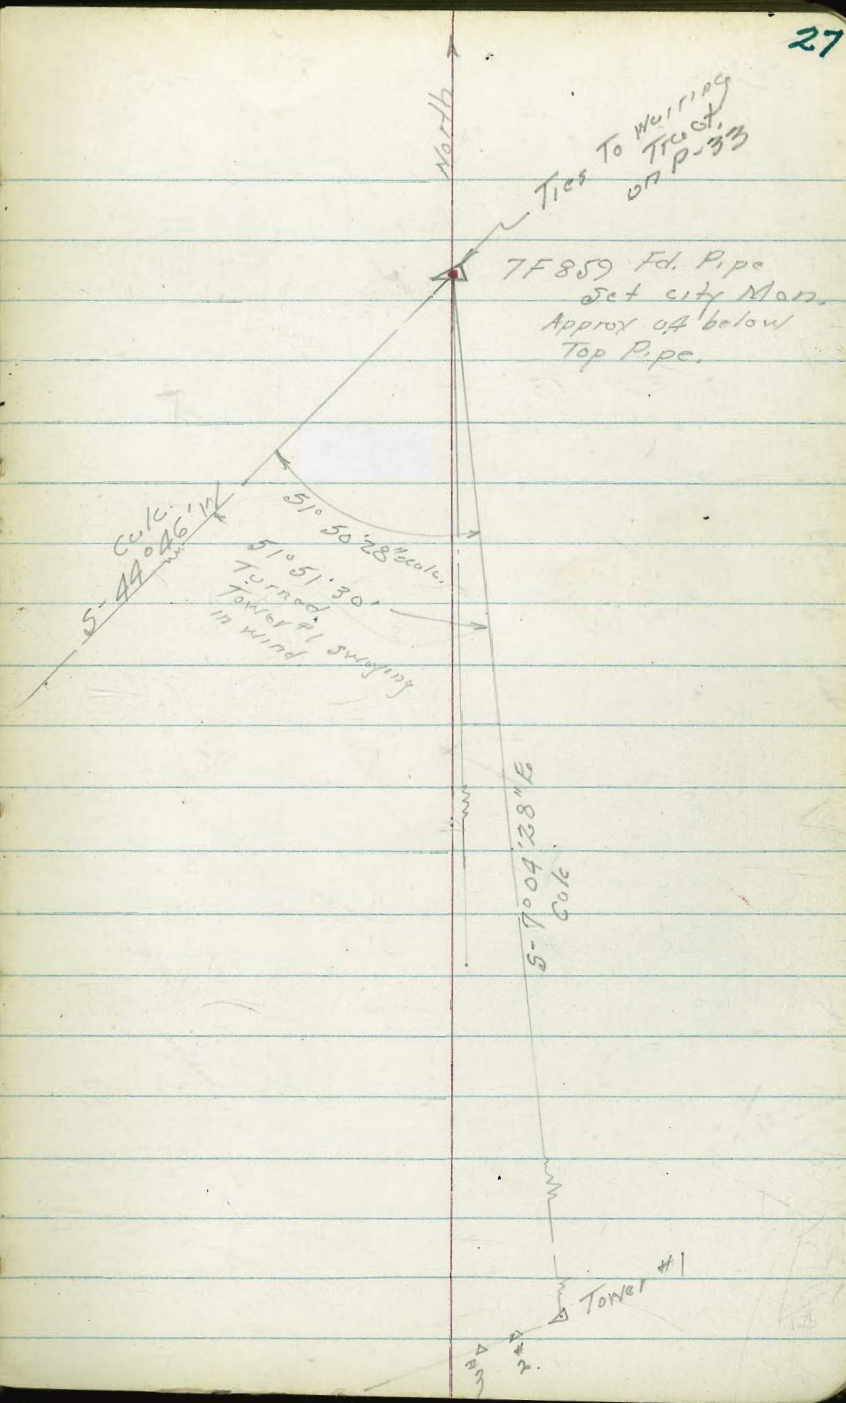 27
North
Ties To Waring
Tract.
on P-33
7F859 Fd. Pipe
Set city Mon.
Approx 0.4 below
Top Pipe.
Calc.
S-44°46'W
51°50'28" calc.
51°51'30"
Turned
Tower #1 swaying
in wind
S-7°04'28"E
Calc
Tower #1
#2
#3